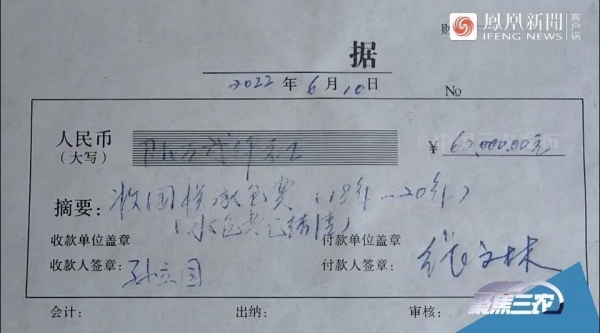 凤凰新闻 客户端
IFENG NEWS
据
2022 年 6 月 10 日
No
人民币
(大写)
¥ 60,000.00元
摘要: 收国样承包费(18年--20年)
(承包费已结清)
收款单位盖章 付款单位盖章
收款人签章: 孙立国 付款人签章: 张文林
会计: 出纳: 审核:
聚焦三农